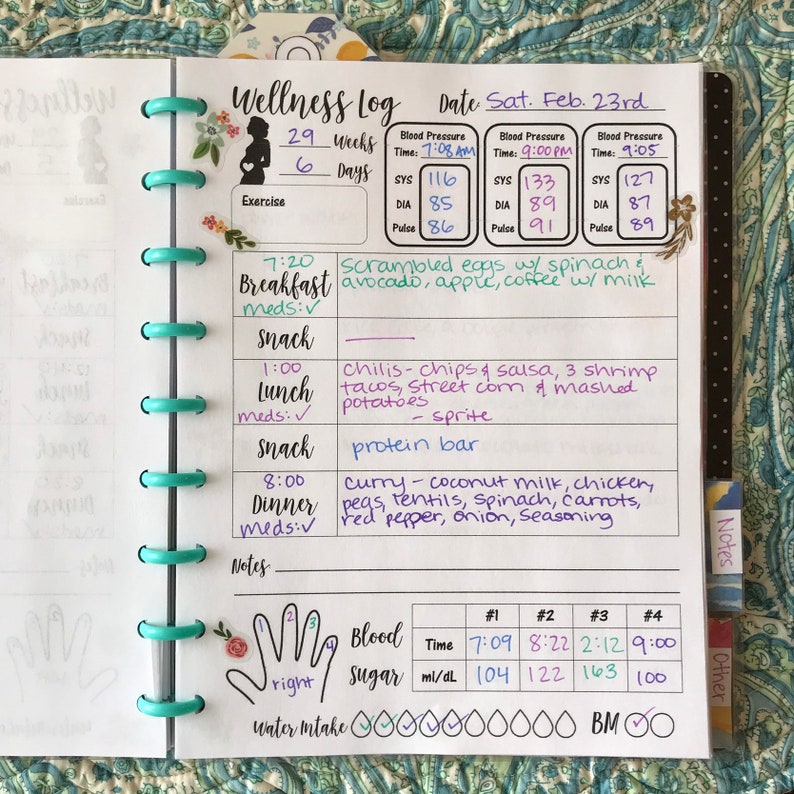 Wellness Log
Date: Sat. Feb. 23rd
29 Weeks
6 Days
Exercise
Blood Pressure
Time: 7:08 AM
SYS 116
DIA 85
Pulse 86
Blood Pressure
Time: 9:00 PM
SYS 133
DIA 89
Pulse 91
Blood Pressure
Time: 9:05
SYS 127
DIA 87
Pulse 89
7:20
Breakfast
meds: ✓
scrambled eggs w/ spinach &
avocado, apple, coffee w/ milk
Snack
1:00
Lunch
meds: ✓
Chilis - chips & salsa, 3 shrimp
tacos, street corn & mashed
potatoes
- sprite
Snack
protein bar
8:00
Dinner
meds: ✓
curry - coconut milk, chicken,
peas, lentils, spinach, carrots,
red pepper, onion, seasoning
Notes:
1 2 3 4
right
Blood Sugar
#1 #2 #3 #4
Time 7:09 8:22 2:12 9:00
ml/dL 104 122 163 100
Water Intake
BM
Notes
Other